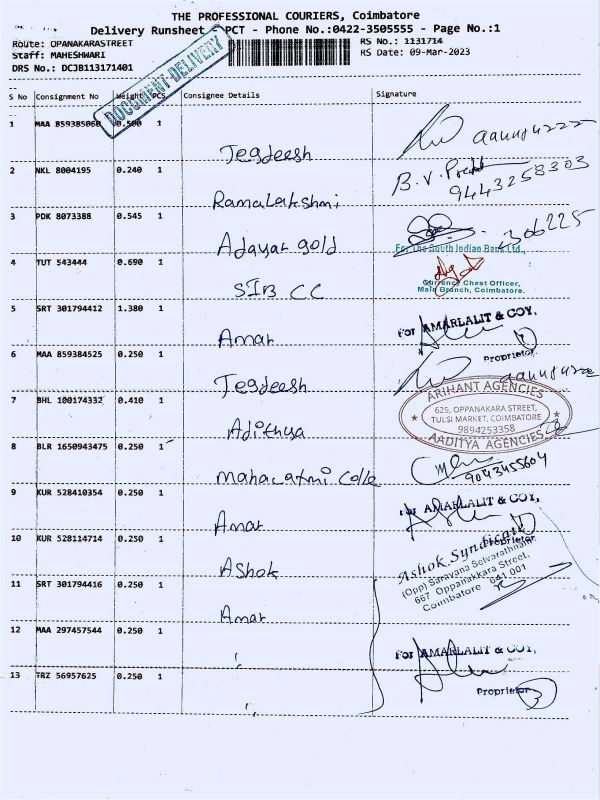 THE PROFESSIONAL COURIERS, Coimbatore
Delivery Runsheet - PCT - Phone No.:0422-3505555 - Page No.:1
Route: OPANAKARASTREET
RS No.: 1131714
Staff: MAHESHWARI
RS Date: 09-Mar-2023
DRS No.: DCJB113171401
DOCUMENT-DELIVERY
S No Consignment No Weight PCS Consignee Details Signature
1 MAA 859385060 0.500 1 Jegdeesh
2 NKL 8004195 0.240 1 Ramalakshmi B.V. 9443258303
3 PDK 8073388 0.545 1 Adayar gold 306225
For The South Indian Bank Ltd.,
4 TUT 543444 0.690 1 SIB CC
Currency Chest Officer,
Main Branch, Coimbatore.
5 SRT 301794412 1.380 1 Amar
For AMARLALIT & COY,
Proprietor.
6 MAA 859384525 0.250 1 Jegdeesh
7 BHL 100174332 0.410 1 Adithya
ARIHANT AGENCIES
629, OPPANAKARA STREET,
TULSI MARKET, COIMBATORE
9894253358
AADITYA AGENCIES
8 BLR 1650943475 0.250 1 mahalaxmi Colle 9043455604
9 KUR 528410354 0.250 1 Amar
For AMARLALIT & COY,
Proprietor
10 KUR 528114714 0.250 1 Ashok
Ashok Syndicate
(Opp) Saravana Selvarathnam
667 Oppanakkara Street,
Coimbatore 641 001
11 SRT 301794416 0.250 1 Amar
12 MAA 297457544 0.250 1 "
For AMARLALIT & COY,
13 TRZ 56957625 0.250 1 "
Proprietor 3